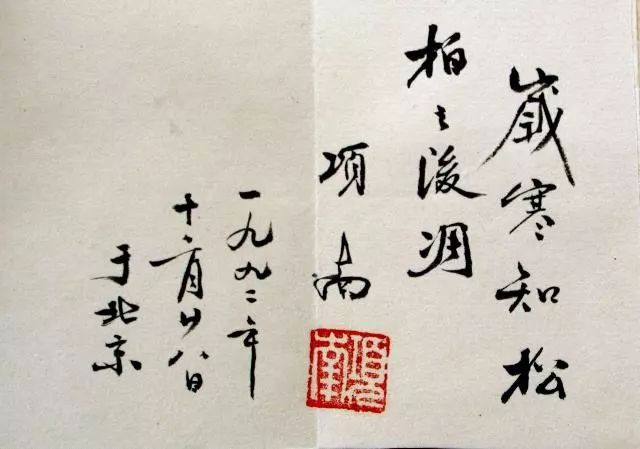 歲寒知松
柏之後凋
項南
一九九二年
十二月廿八日
于北京
項南